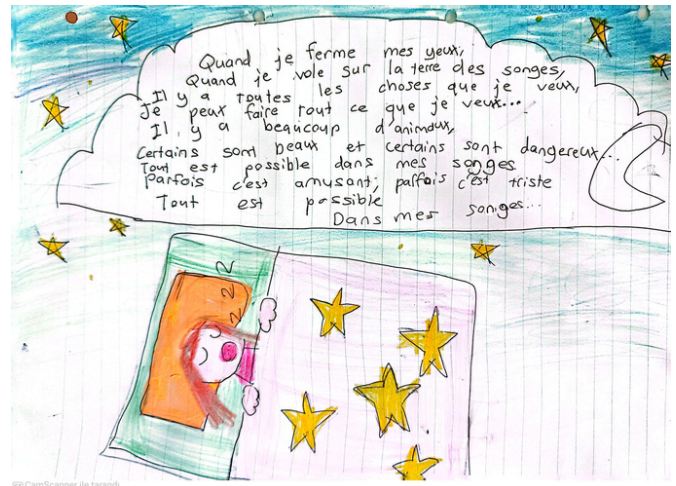 Quand je ferme mes yeux,
Quand je vole sur la terre des songes,
Il y a toutes les choses que je veux,
Je peux faire tout ce que je veux...
Il y a beaucoup d'animaux,
Certains sont beaux et certains sont dangereux...
Tout est possible dans mes songes
Parfois c'est amusant, parfois c'est triste
Tout est possible
Dans mes songes...
z z z z
CamScanner ile tarandı